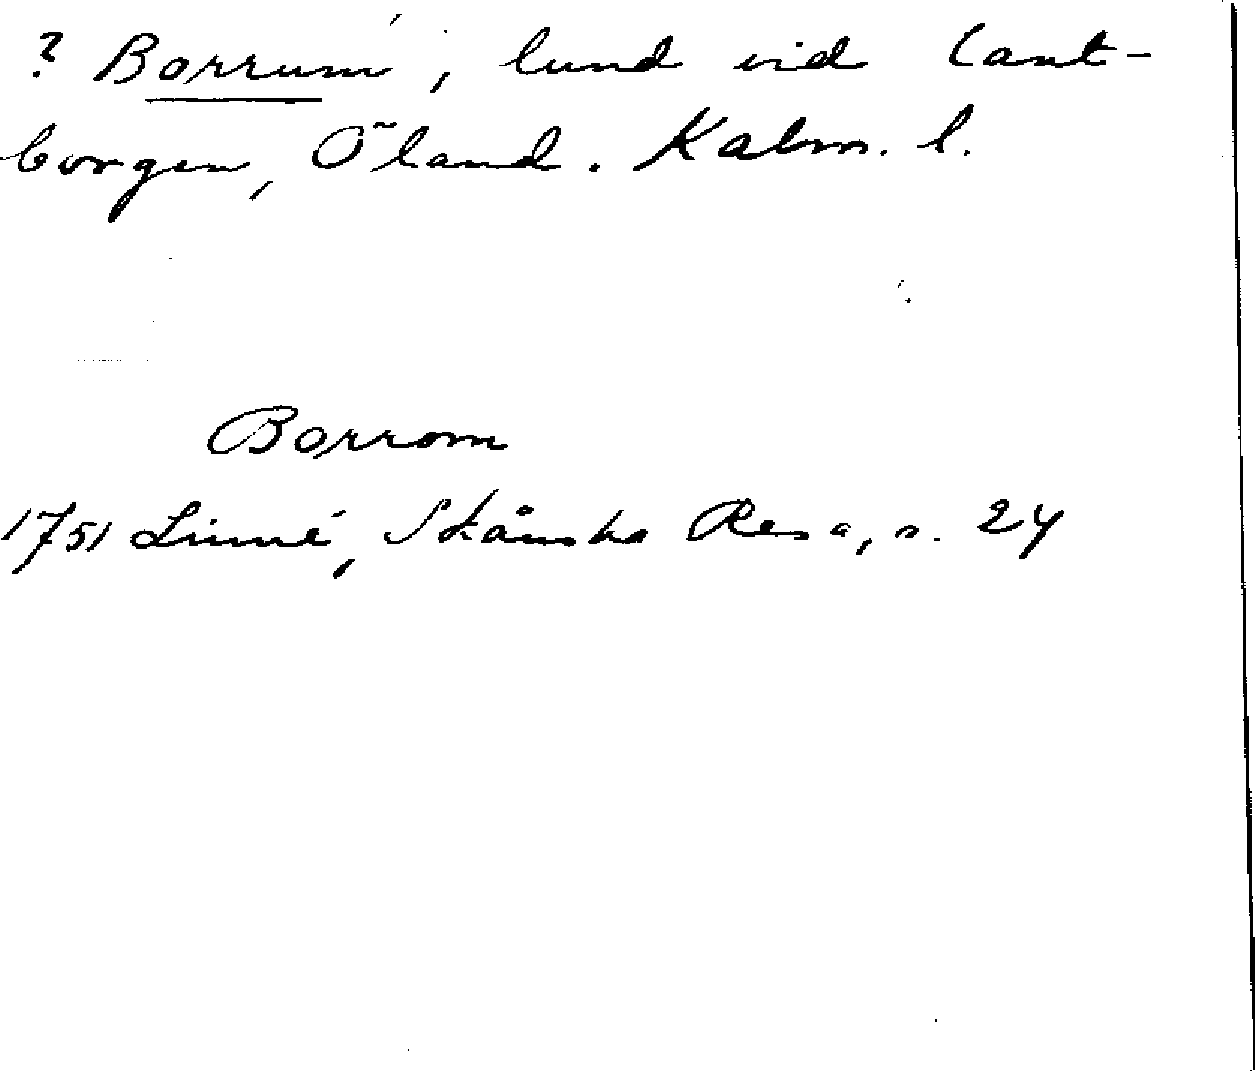 ? Borrum, lund vid Cant-
borgen, Öland. Kalm. l.
Borrom
1751 Linné, Skånska Resa, s. 24